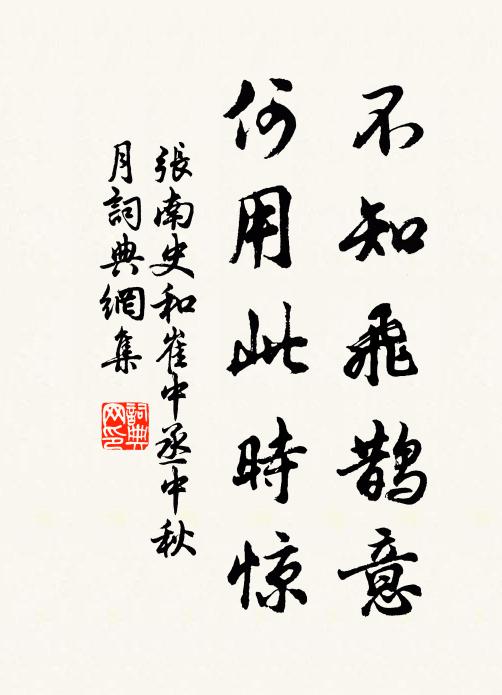 不知飛鵲意
何用此時惊
張南史和崔中丞中秋
月詞典網集
詞典网印